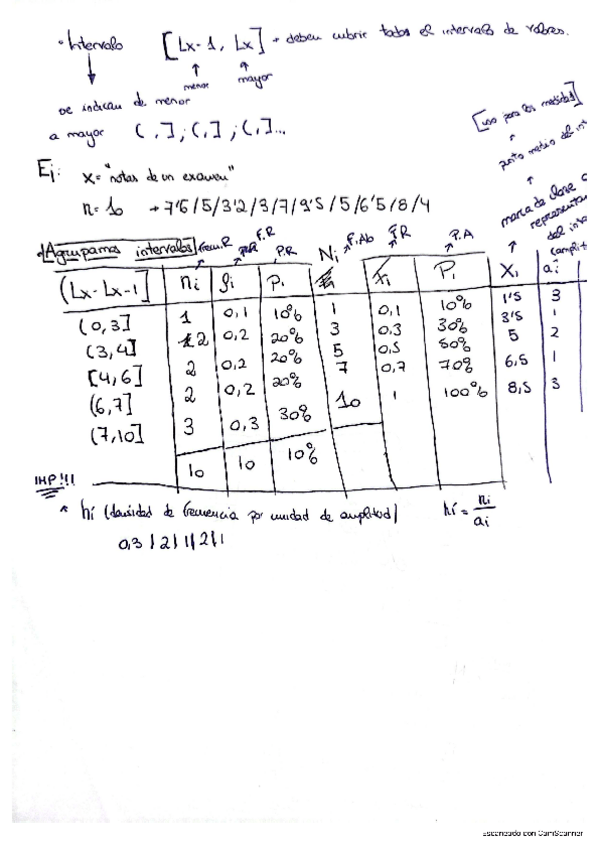 · Intervalo [Lx-1, Lx] → deben cubrir todos el intervalo de valores.
menor mayor
se indican de menor
a mayor ( , ] ; ( , ] ; ( , ]...
[uso para las medidas]
punto medio del
Ej: X= "notas de un examen"
n= 10 → 7'5 / 5 / 3'2 / 3 / 7 / 9'5 / 5 / 6'5 / 8 / 4
marca de clase
del
Agrupamos intervalos
F.R P.R F.Ab F.R P.A
(Lx- Lx-1] ni fi pi Ni Fi Pi Xi ai
(0,3] 1 0,1 10% 1 0,1 10% 1'5 3
(3,4] 2 0,2 20% 3 0,3 30% 3'5 1
[4,6] 2 0,2 20% 5 0,5 50% 5 2
(6,7] 2 0,2 20% 7 0,7 70% 6,5 1
(7,10] 3 0,3 30% 10 1 100% 8,5 3
10 10 10%
IMP!!!
* hi (densidad de frecuencia por unidad de amplitud) hi = ni/ai
0,3 / 2 / 1 / 2 / 1
Escaneado con CamScanner